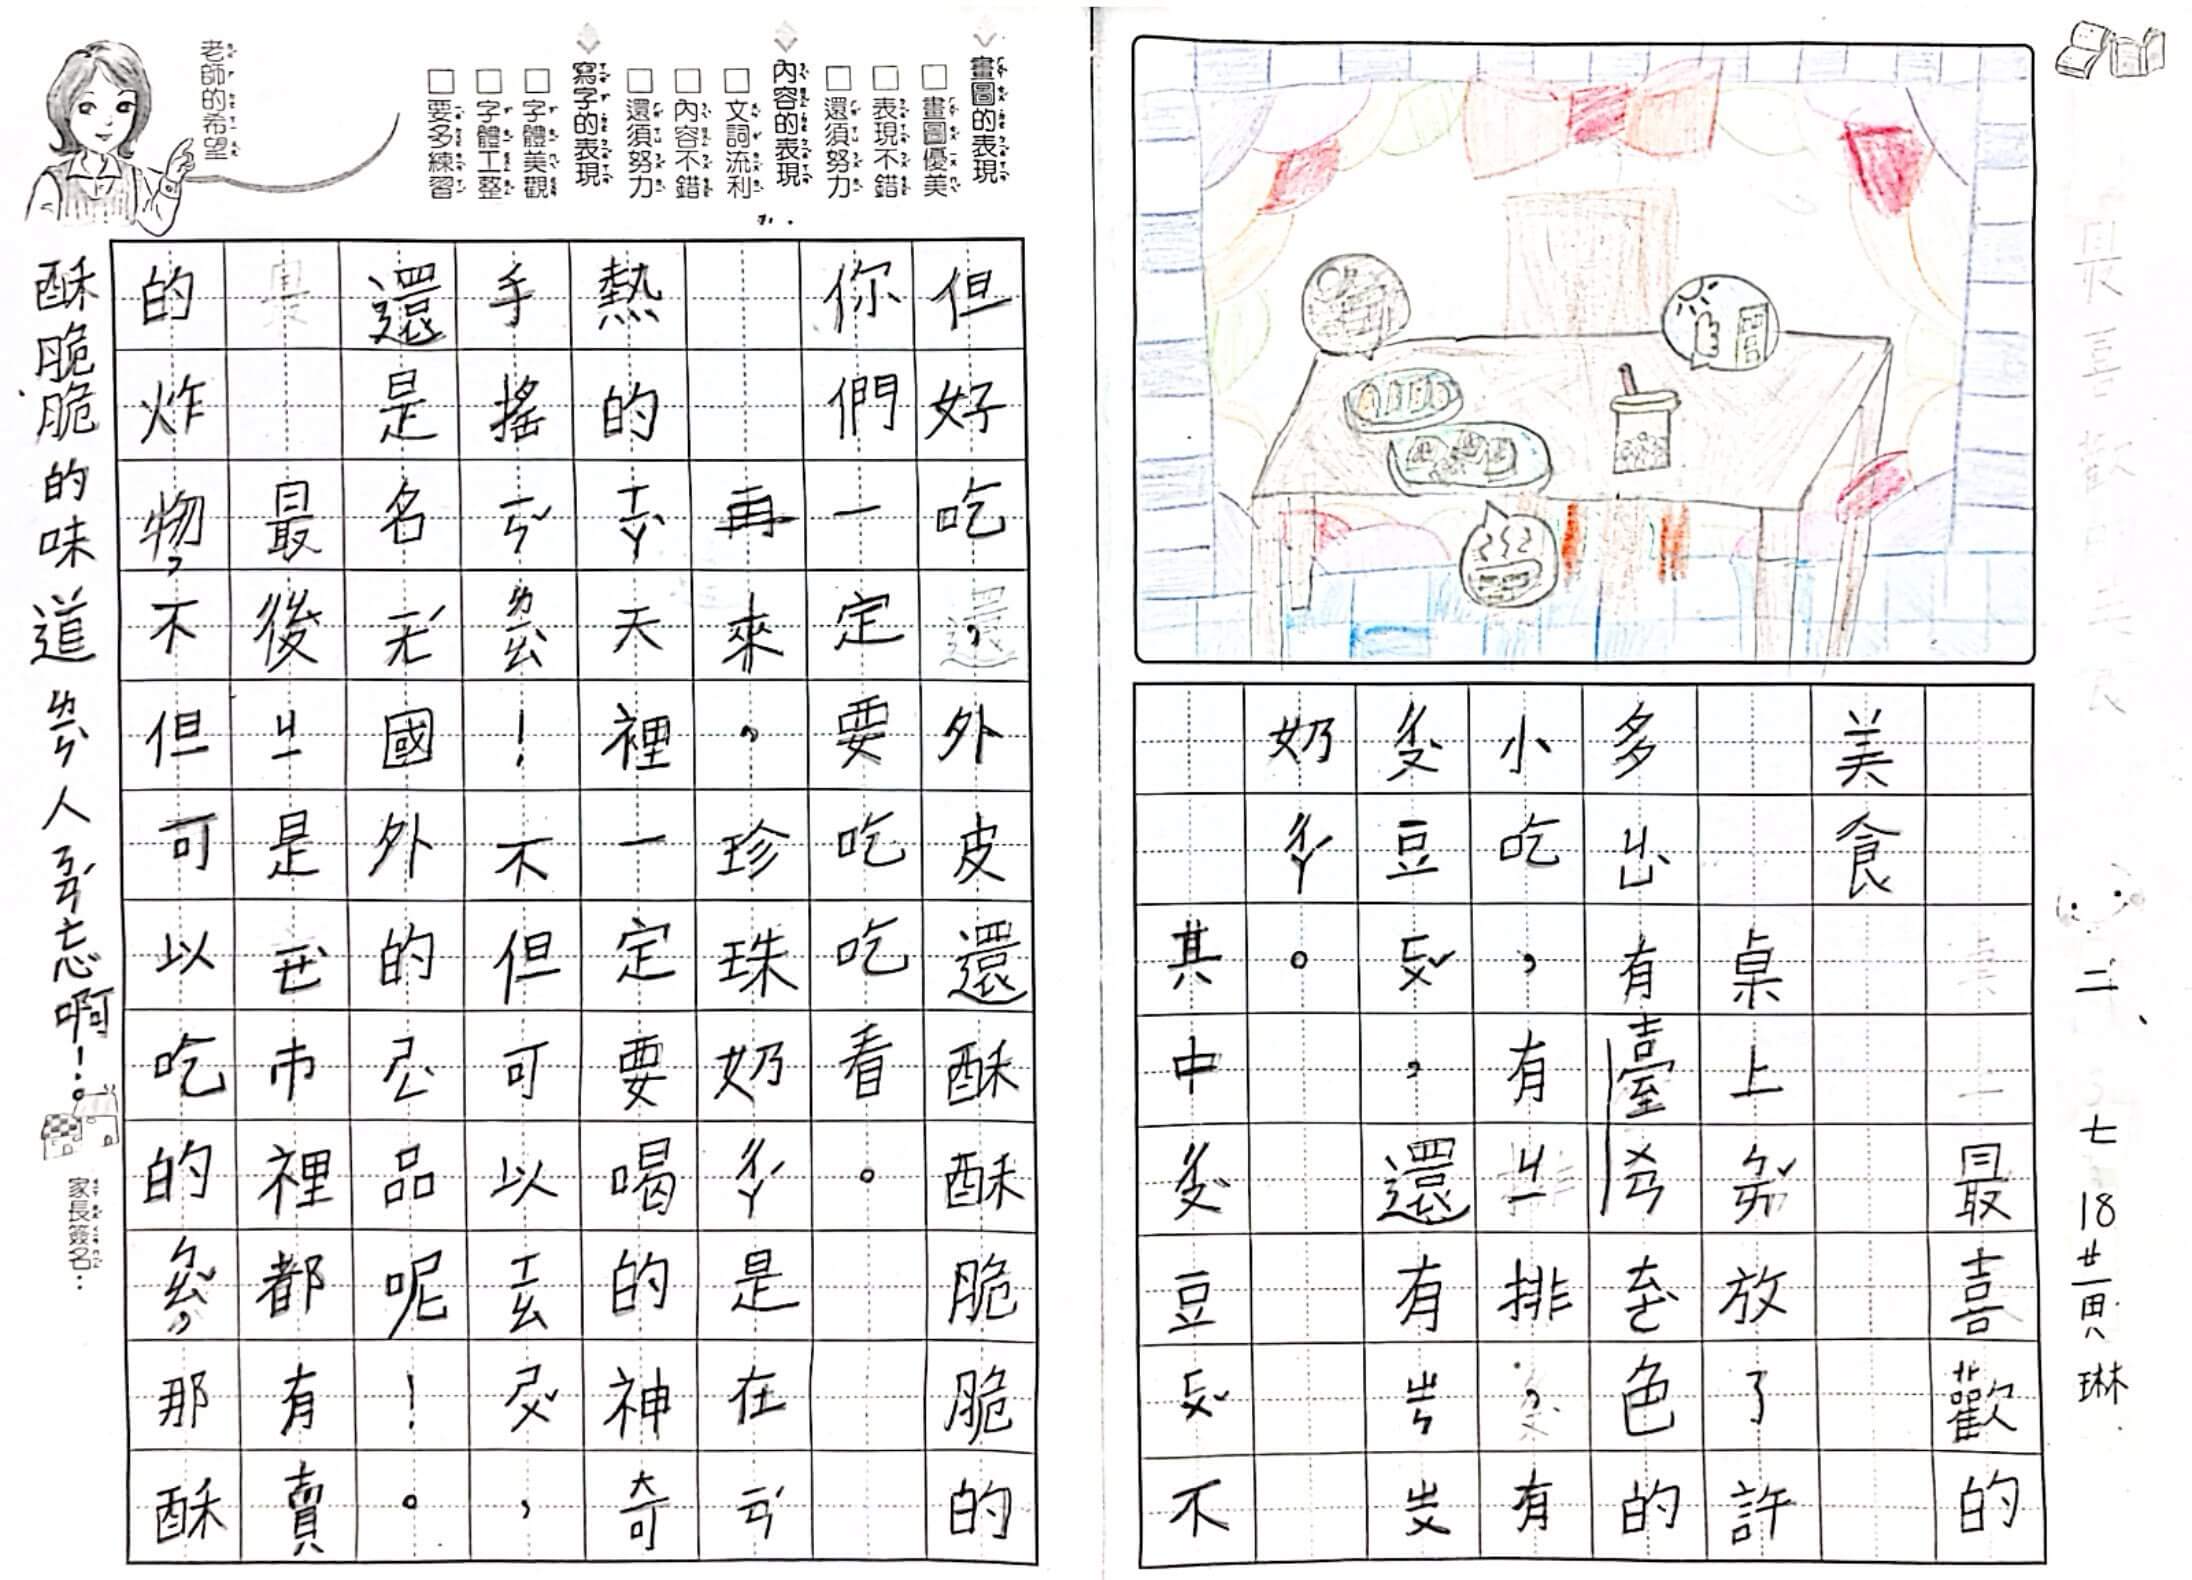 二 七 18 黃 琳
最喜歡的
美食
桌上ㄅㄞˇ放了許
多ㄐㄩˋ有臺ㄨㄢㄊㄜˋ色的
小吃，有ㄐㄧ排，有
ㄔㄡˋ豆ㄈㄨˇ，還有ㄓㄣㄓㄨ
奶ㄔㄚˊ。
其中ㄔㄡˋ豆ㄈㄨˇ不
畫圖的表現
□畫圖優美
□表現不錯
□還須努力
內容的表現
□文詞流利
□內容不錯
□還須努力
寫字的表現
□字體美觀
□字體工整
□要多練習
老師的希望
但好吃，外皮還酥酥脆脆的
你們一定要吃吃看。
再來，珍珠奶ㄔㄚˊ是在ㄧㄢˊ
熱的ㄒㄧㄚˋ天裡一定要喝的神奇
手搖ㄧㄣˇㄌㄧㄠˋ！不但可以ㄒㄧㄠㄕㄨˇ，
還是名ㄧㄤˊ國外的ㄕㄥ品呢！。
最後ㄐㄧ是ㄧㄝˋ市裡都有賣
的炸物，不但可以吃的ㄅㄠˇ，那酥
酥脆脆的味道ㄌㄧㄣˋ人ㄋㄢˊ忘啊！。
家長簽名：